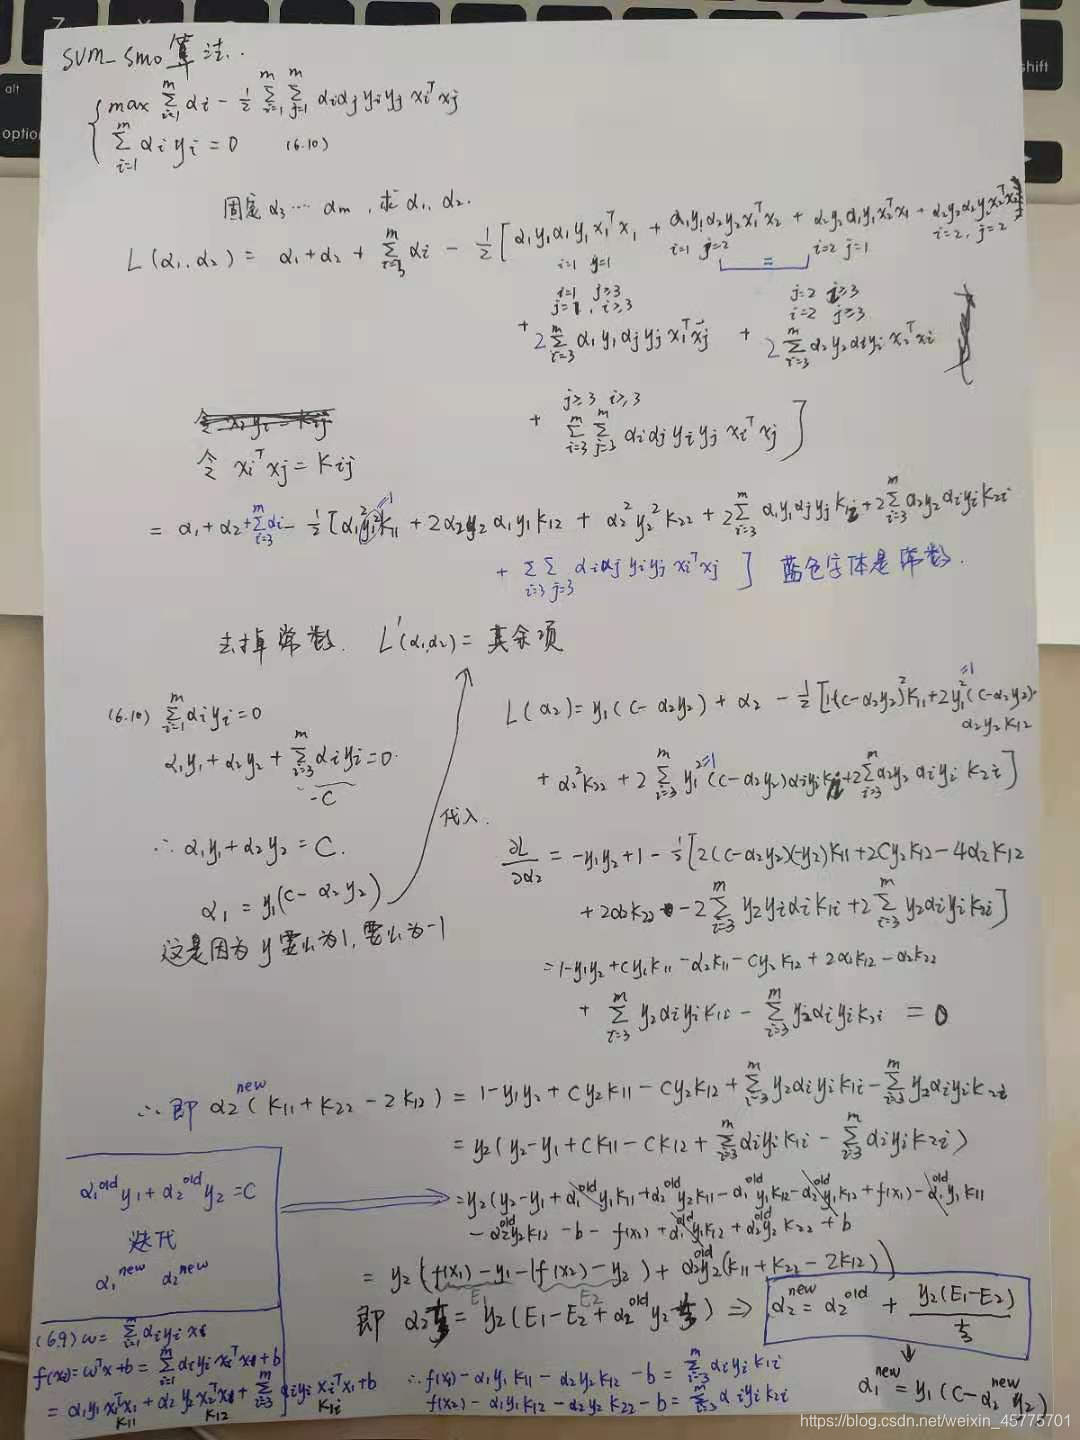 SVM_SMO算法.
max Σ_{i=1}^{m} αi - 1/2 Σ_{i=1}^{m} Σ_{j=1}^{m} αiαj yi yj xi^T xj
Σ_{i=1}^{m} αi yi = 0 (6.10)
固定 α3 ⋯ αm , 求 α1, α2.
L(α1, α2) = α1+α2 + Σ_{i=3}^{m} αi - 1/2 [ α1y1α1y1 x1^T x1 + α1y1α2y2 x1^T x2 + α2y2α1y1 x2^T x1 + α2y2α2y2 x2^T x2
i=1 j=1 i=1 j=2 = i=2 j=1 i=2, j=2
i=1 j≥3 j=2 i≥3
j=1, i≥3 i=2 j≥3
+ 2Σ_{i=3}^{m} α1y1αjyj x1^T xj + 2Σ_{i=3}^{m} α2y2αiyi x2^T xi
j≥3 i≥3
+ Σ_{i=3}^{m} Σ_{j=3}^{m} αiαj yi yj xi^T xj ]
令 xi^T xj = Kij
= α1+α2+Σ_{i=3}^{m} αi - 1/2 [α1^2 y1^2 K11 + 2α2y2 α1y1 K12 + α2^2 y2^2 K22 + 2Σ_{i=3}^{m} α1y1αjyj K1i + 2Σ_{i=3}^{m} α2y2αiyi K2i
+ Σ_{i=3} Σ_{j=3} αiαj yi yj xi^T xj ] 蓝色字体是常数.
去掉常数. L'(α1,α2) = 其余项
(6.10) Σ_{i=1}^{m} αi yi = 0
α1y1 + α2y2 + Σ_{i=3}^{m} αi yi = 0.
-C
∴ α1y1 + α2y2 = C.
α1 = y1(C - α2y2)
这是因为 y 要么为1, 要么为-1
代入.
L(α2) = y1(C - α2y2) + α2 - 1/2 [1·(C-α2y2)^2 K11 + 2y1^2 (C-α2y2)·
=1
α2y2 K12
+ α2^2 K22 + 2Σ_{i=3}^{m} y1^2 (C-α2y2)αiyi K1i + 2Σ_{i=3}^{m} α2y2 αiyi K2i ]
=1
∂L/∂α2 = -y1y2 + 1 - 1/2 [2(C-α2y2)(-y2)K11 + 2Cy2K12 - 4α2K12
+ 2α2K22 - 2Σ_{i=3}^{m} y2yiαi K1i + 2Σ_{i=3}^{m} y2αiyi K2i ]
= 1-y1y2 + Cy2K11 - α2K11 - Cy2K12 + 2α2K12 - α2K22
+ Σ_{i=3}^{m} y2αiyi K1i - Σ_{i=3}^{m} y2αiyi K2i = 0
∴ 即 α2^new (K11 + K22 - 2K12) = 1-y1y2 + Cy2K11 - Cy2K12 + Σ_{i=3}^{m} y2αiyi K1i - Σ_{i=3}^{m} y2αiyi K2i
= y2(y2-y1 + CK11 - CK12 + Σ_{i=3}^{m} αiyi K1i - Σ_{i=3}^{m} αiyi K2i)
α1^old y1 + α2^old y2 = C
迭代
α1^new α2^new
= y2(y2-y1 + α1^old y1K11 + α2^old y2K11 - α1^old y1K12 - α2^old y2K12 + f(x1) - α1^old y1K11
- α2^old y2K12 - b - f(x2) + α1^old y1K12 + α2^old y2 K22 + b
= y2 (f(x1) - y1 - (f(x2) - y2) + α2^old y2(K11 + K22 - 2K12))
E1 E2
即 α2ξ = y2(E1-E2 + α2^old y2 ξ) ⇒ α2^new = α2^old + y2(E1-E2)/ξ
α1^new = y1(C - α2^new y2)
(6.9) ω = Σ_{i=1}^{m} αi yi xi
f(x1) = ω^T x + b = Σ_{i=1}^{m} αiyi xi^T x1 + b
= α1y1 x1^T x1 + α2 y2 x2^T x1 + Σ_{i=3}^{m} αiyi xi^T x1 + b
K11 K12 K1i
∴ f(x1) - α1y1 K11 - α2y2 K12 - b = Σ_{i=3}^{m} αiyi K1i
f(x2) - α1y1 K12 - α2y2 K22 - b = Σ_{i=3}^{m} αiyi K2i
https://blog.csdn.net/weixin_45775701
alt
option
shift